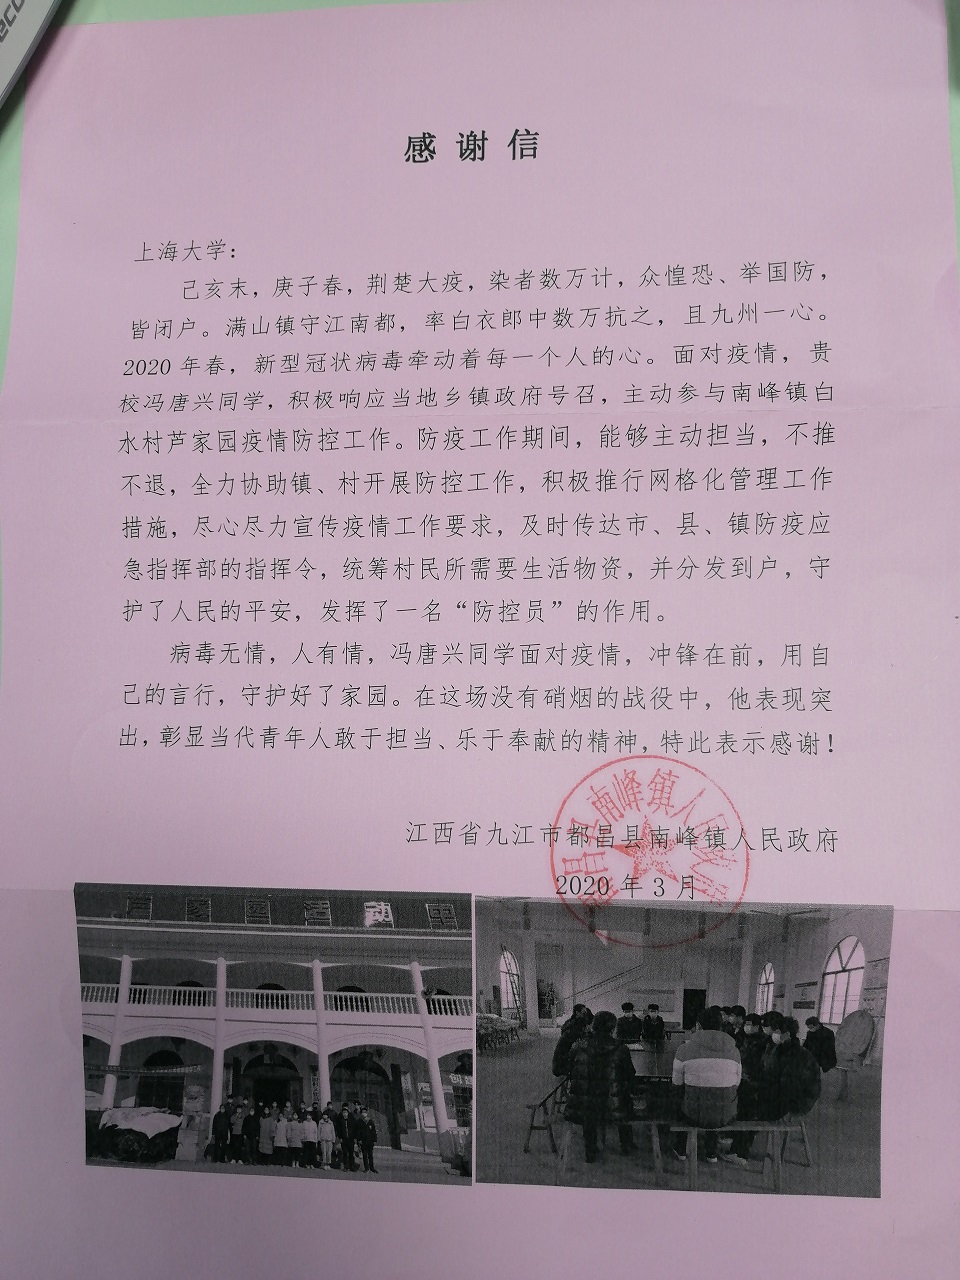 eco
感谢信
上海大学：
己亥末，庚子春，荆楚大疫，染者数万计，众惶恐、举国防，
皆闭户。满山镇守江南都，率白衣郎中数万抗之，且九州一心。
2020年春，新型冠状病毒牵动着每一个人的心。面对疫情，贵
校冯唐兴同学，积极响应当地乡镇政府号召，主动参与南峰镇白
水村芦家园疫情防控工作。防疫工作期间，能够主动担当，不推
不退，全力协助镇、村开展防控工作，积极推行网格化管理工作
措施，尽心尽力宣传疫情工作要求，及时传达市、县、镇防疫应
急指挥部的指挥令，统筹村民所需要生活物资，并分发到户，守
护了人民的平安，发挥了一名“防控员”的作用。
病毒无情，人有情，冯唐兴同学面对疫情，冲锋在前，用自
己的言行，守护好了家园。在这场没有硝烟的战役中，他表现突
出，彰显当代青年人敢于担当、乐于奉献的精神，特此表示感谢！
江西省九江市都昌县南峰镇人民政府
2020年3月
昌县南峰镇人民政府
芦家园活动中
创建